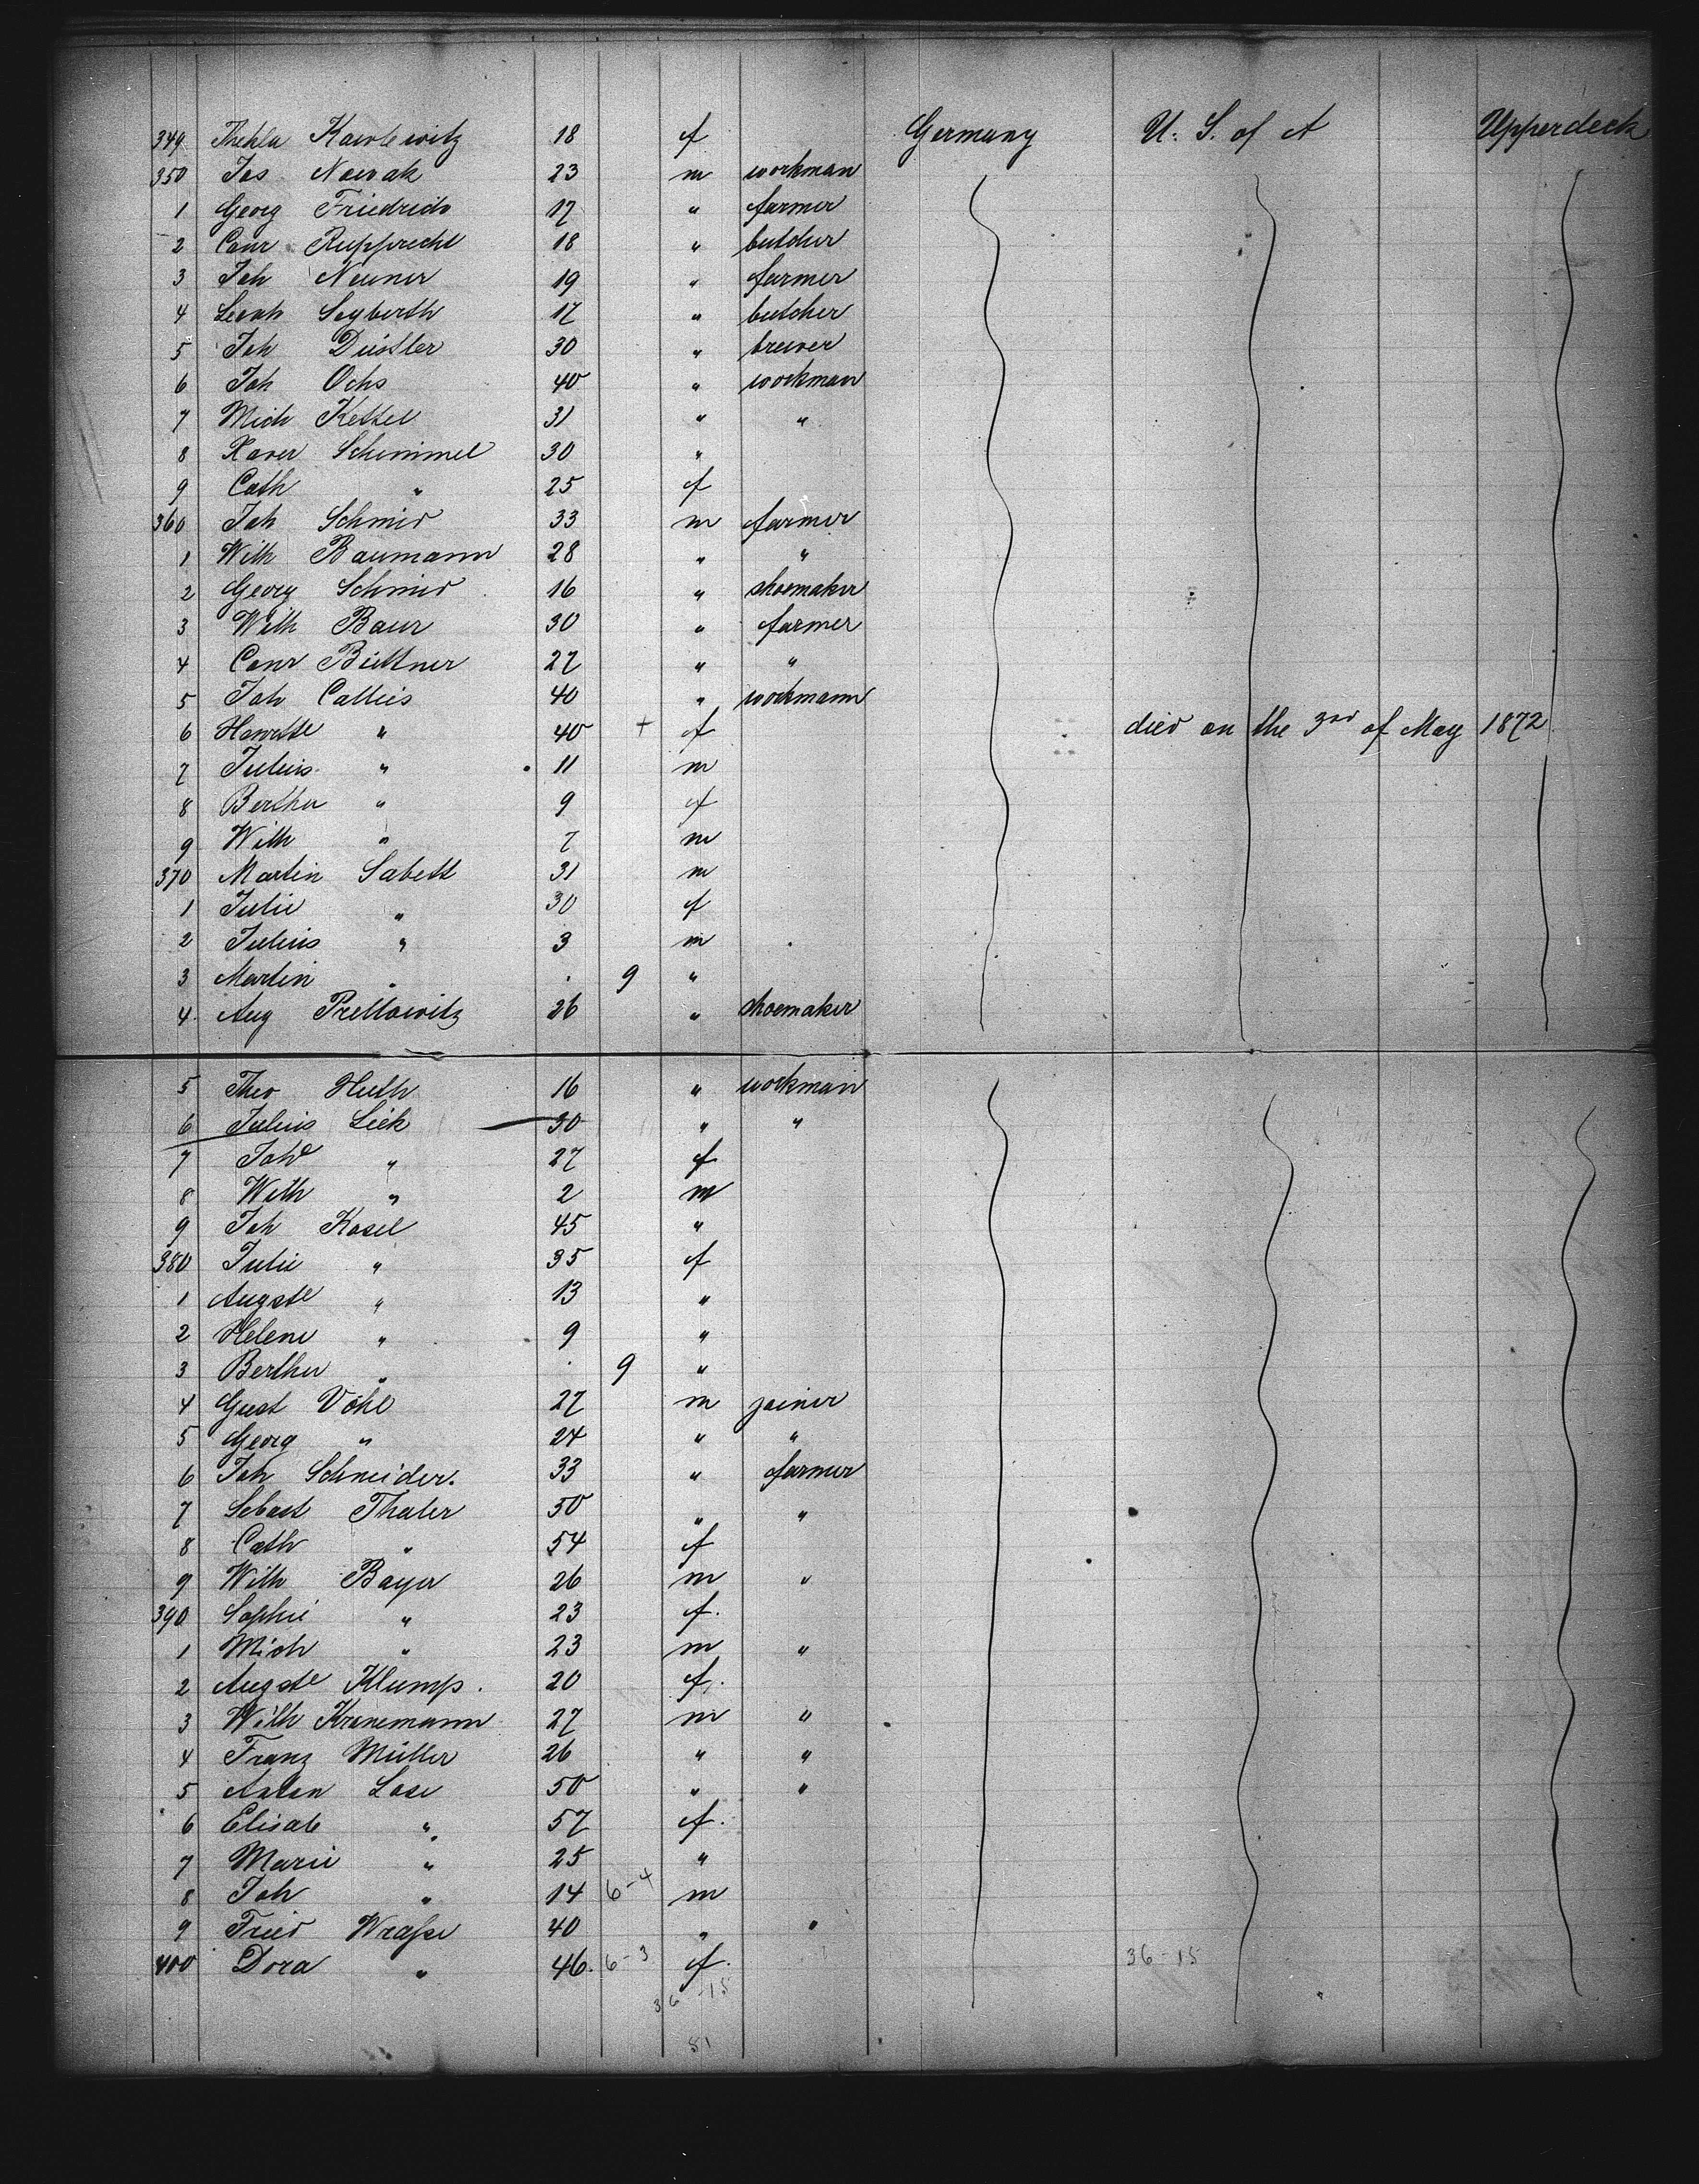 349 Thekla Kawlewitz 18 f Germany U. S. of A Upperdeck
350 Jos Nowak 23 m workman
1 Georg Friedrich 17 " farmer
2 Conr Rupprecht 18 " butcher
3 Joh Neuner 19 " farmer
4 Leonh Seyberth 17 " butcher
5 Joh Distler 30 " brewer
6 Joh Ochs 40 " workman
7 Mich Kettel 31 " "
8 Xaver Schimmel 30 "
9 Cath " 25 f
360 Joh Schmid 33 m farmer
1 Wilh Baumann 28 " "
2 Georg Schmid 16 " shoemaker
3 Wilh Baur 30 " farmer
4 Conr Büttner 27 " "
5 Joh Callies 40 " workmann
6 " 40 + f died on the 3rd of May 1872
7 Julius " 11 m
8 Bertha " 9 f
9 Wilh " 7 m
370 Martin Sabett 31 m
1 Julie " 30 f
2 Julius " 3 m
3 Martin " . 9 "
4 Aug Prellowitz 26 " shoemaker
5 Theo Huth 16 " workman
6 Julius Lick 30 " "
7 Johe " 27 f
8 Wilh " 2 m
9 Joh Kosel 45 "
380 Julie " 35 f
1 Augste " 13 "
2 Helene " 9 "
3 Bertha " . 9 "
4 Gust Vöhl 27 m joiner
5 Georg " 24 " "
6 Joh Schneider. 33 " farmer
7 Sebast Thaler 50 " "
8 Cath " 54 f
9 Wilh Bayer 26 m "
390 Sophie " 23 f.
1 Mich " 23 m "
2 Augste Klump. 20 f.
3 Wilh Kranemann 27 m "
4 Franz Müller 26 " "
5 Anton Lose 50 " "
6 Elisab " 57 f.
7 Marie " 25 "
8 Joh " 14 6-4 m
9 Fried Wraſse 40 " "
400 Dora " 46. 6-3 f. 36-15
36-15
81